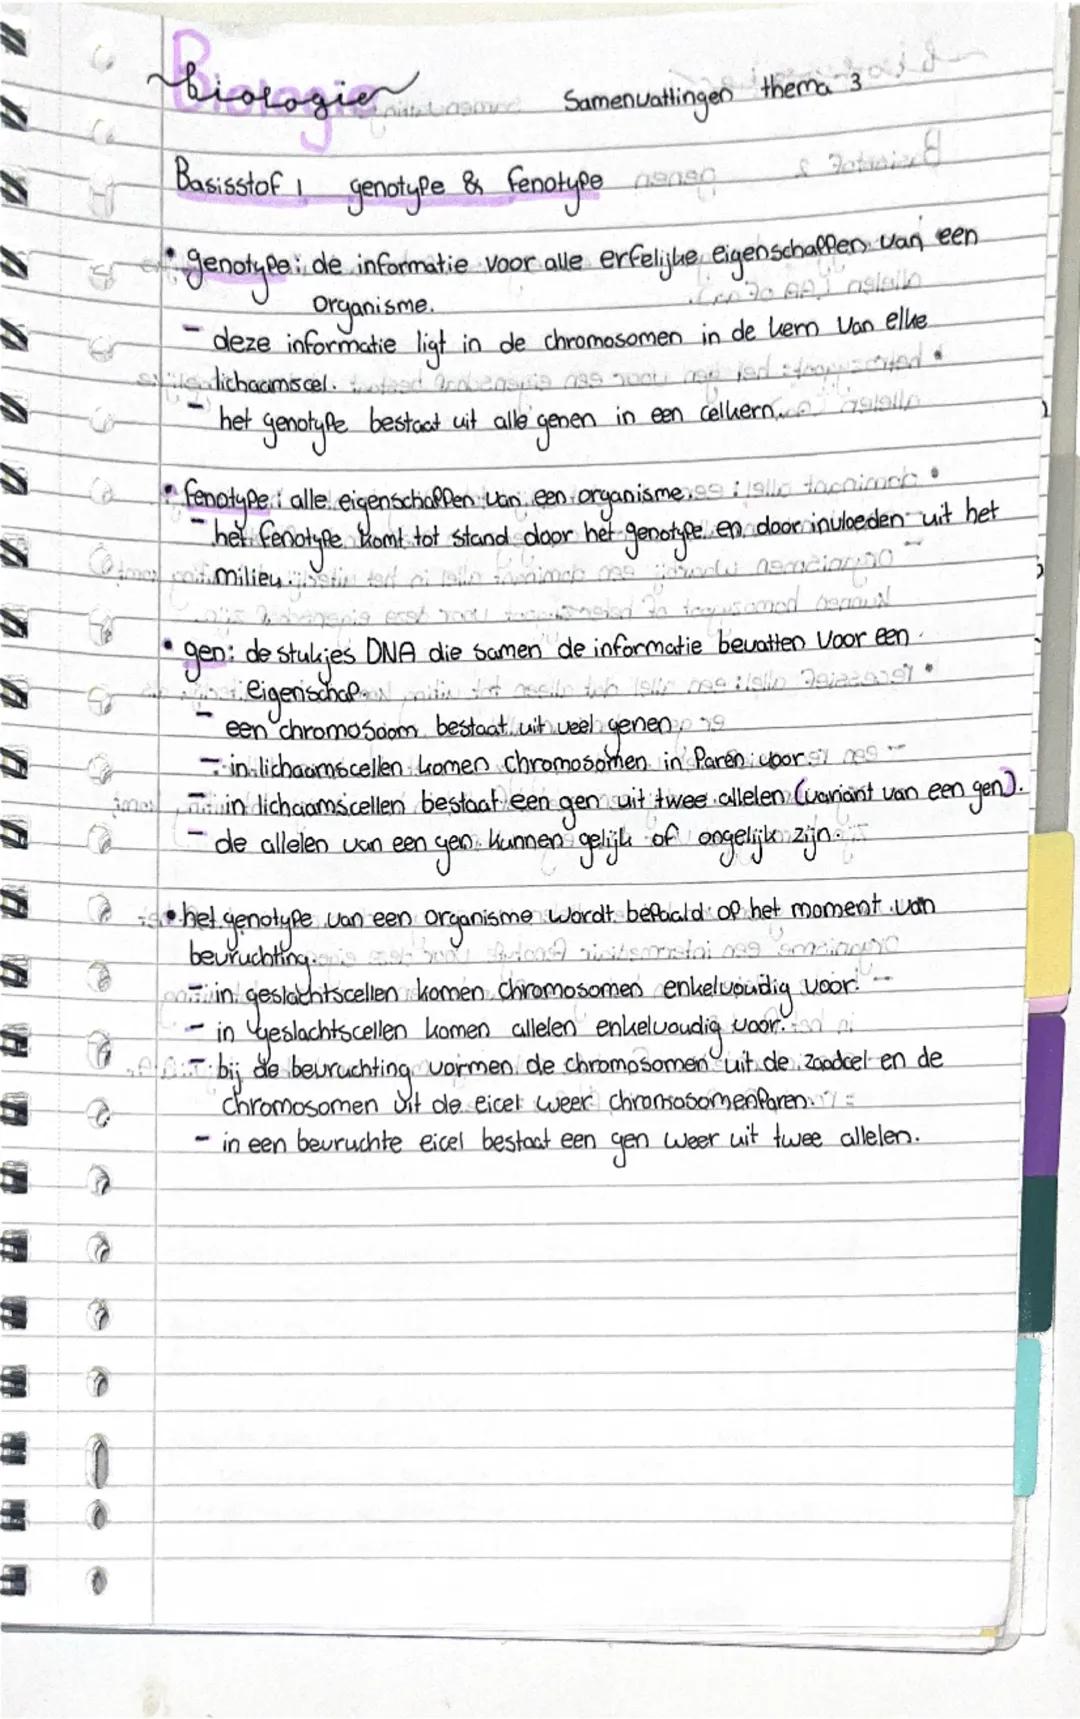 Biologie
biologie
Samenvattingen thema 3
Basisstof 1 genotype & fenotype
• genotype: de informatie voor alle erfelijke eigenschappen van een
organisme.
- deze informatie ligt in de chromosomen in de kern van elke
lichaamscel.
- het genotype bestaat uit alle genen in een celkern.
• fenotype: alle eigenschappen van een organisme.
- het fenotype komt tot stand door het genotype en door invloeden uit het
milieu.
• gen: de stukjes DNA die samen de informatie bevatten voor een
eigenschap.
- een chromosoom bestaat uit veel genen.
- in lichaamscellen komen chromosomen in paren voor
- in lichaamscellen bestaat een gen uit twee allelen (variant van een gen).
- de allelen van een gen kunnen gelijk of ongelijk zijn.
• het genotype van een organisme wordt bepaald op het moment van
bevruchting.
- in geslachtscellen komen chromosomen enkelvoudig voor.
- in geslachtscellen komen allelen enkelvoudig voor.
- bij de bevruchting vormen de chromosomen uit de zaadcel en de
chromosomen uit de eicel weer chromosomenparen.
- in een bevruchte eicel bestaat een gen weer uit twee allelen.